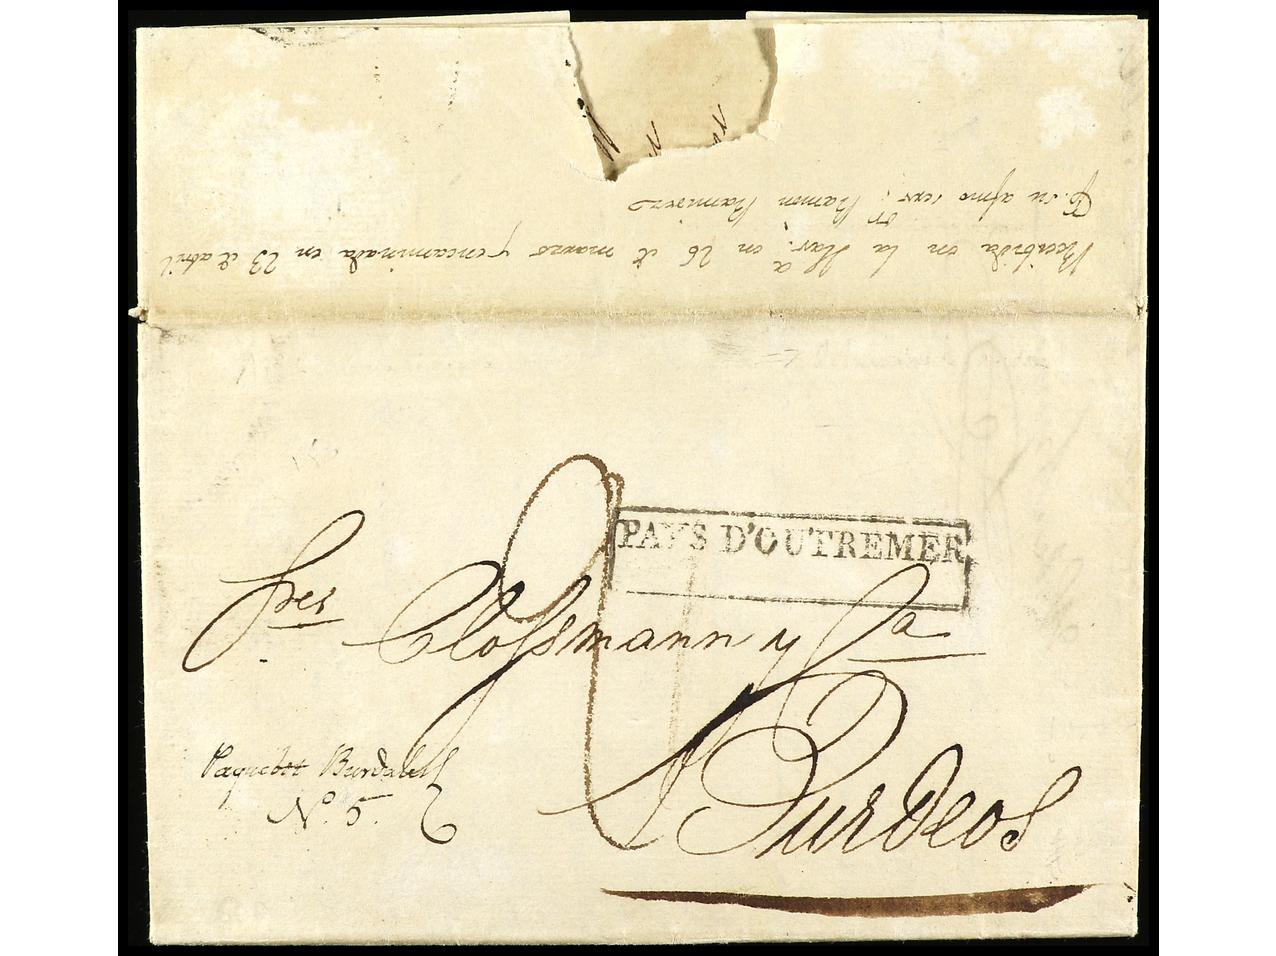 Recibida en la Hav.a en 26 de marzo y encaminada en 23 de abril
P. su afmo serv.or Ramon Ramirez
PAYS D'OUTREMER
Sres Clossmann y Ca
Burdeos
Paquebot Burdales
No. 5.